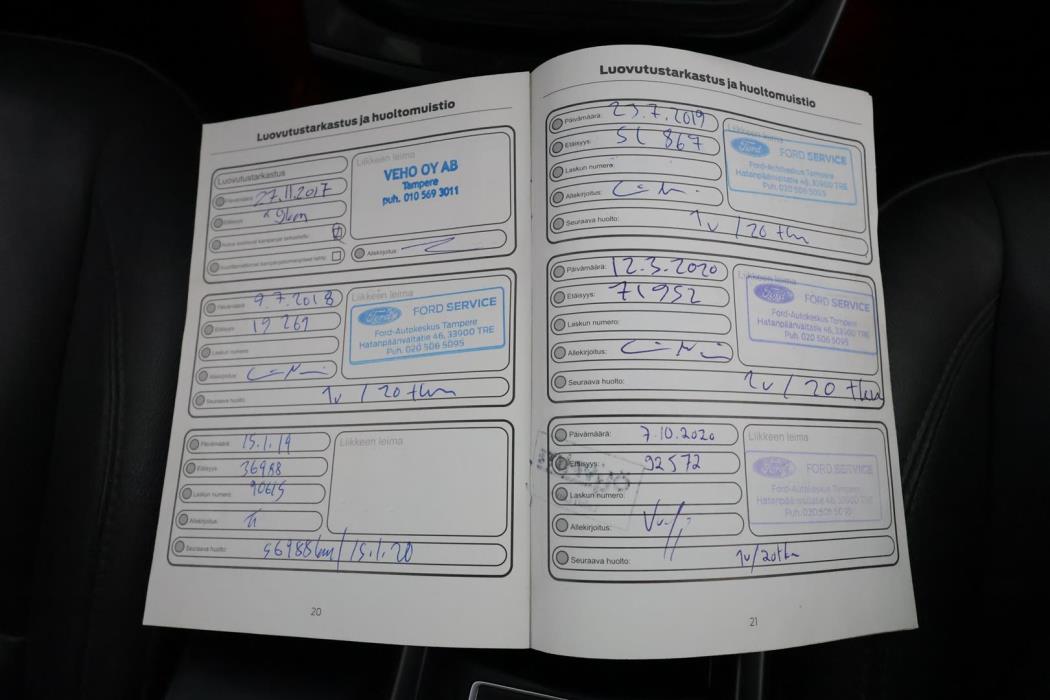 Luovutustarkastus ja huoltomuistio
Luovutustarkastus
Päivämäärä 27.11.2017
Etäisyys 9km
Allekirjoitus
Liikkeen leima
VEHO OY AB
Tampere
puh. 010 569 3011
Päivämäärä: 9.7.2018
Etäisyys: 19 261
Laskun numero:
Allekirjoitus:
Seuraava huolto: 1v / 20 tkm
Liikkeen leima
Ford FORD SERVICE
Ford-Autokeskus Tampere
Hatanpäänvaltatie 46, 33900 TRE
Puh. 020 506 5095
Päivämäärä: 15.1.19
Etäisyys: 36988
Laskun numero: 90615
Allekirjoitus:
Seuraava huolto: 56988km / 15.1.20
Liikkeen leima
20
Luovutustarkastus ja huoltomuistio
Päivämäärä: 23.7.2019
Etäisyys: 51 867
Laskun numero:
Allekirjoitus:
Seuraava huolto: 1v / 20 tkm
Liikkeen leima
Ford FORD SERVICE
Ford-Autokeskus Tampere
Hatanpäänvaltatie 46, 33900 TRE
Puh. 020 506 5095
Päivämäärä: 12.3.2020
Etäisyys: 71952
Laskun numero:
Allekirjoitus:
Seuraava huolto: 1v / 20 tkm
Liikkeen leima
Ford FORD SERVICE
Ford-Autokeskus Tampere
Hatanpäänvaltatie 46, 33900 TRE
Puh. 020 506 5095
Päivämäärä: 7.10.2020
Etäisyys: 92572
Laskun numero:
Allekirjoitus:
Seuraava huolto: 1v/20tkm
Liikkeen leima
Ford FORD SERVICE
Ford-Autokeskus Tampere
Hatanpäänvaltatie 46, 33900 TRE
Puh. 020 506 5095
21